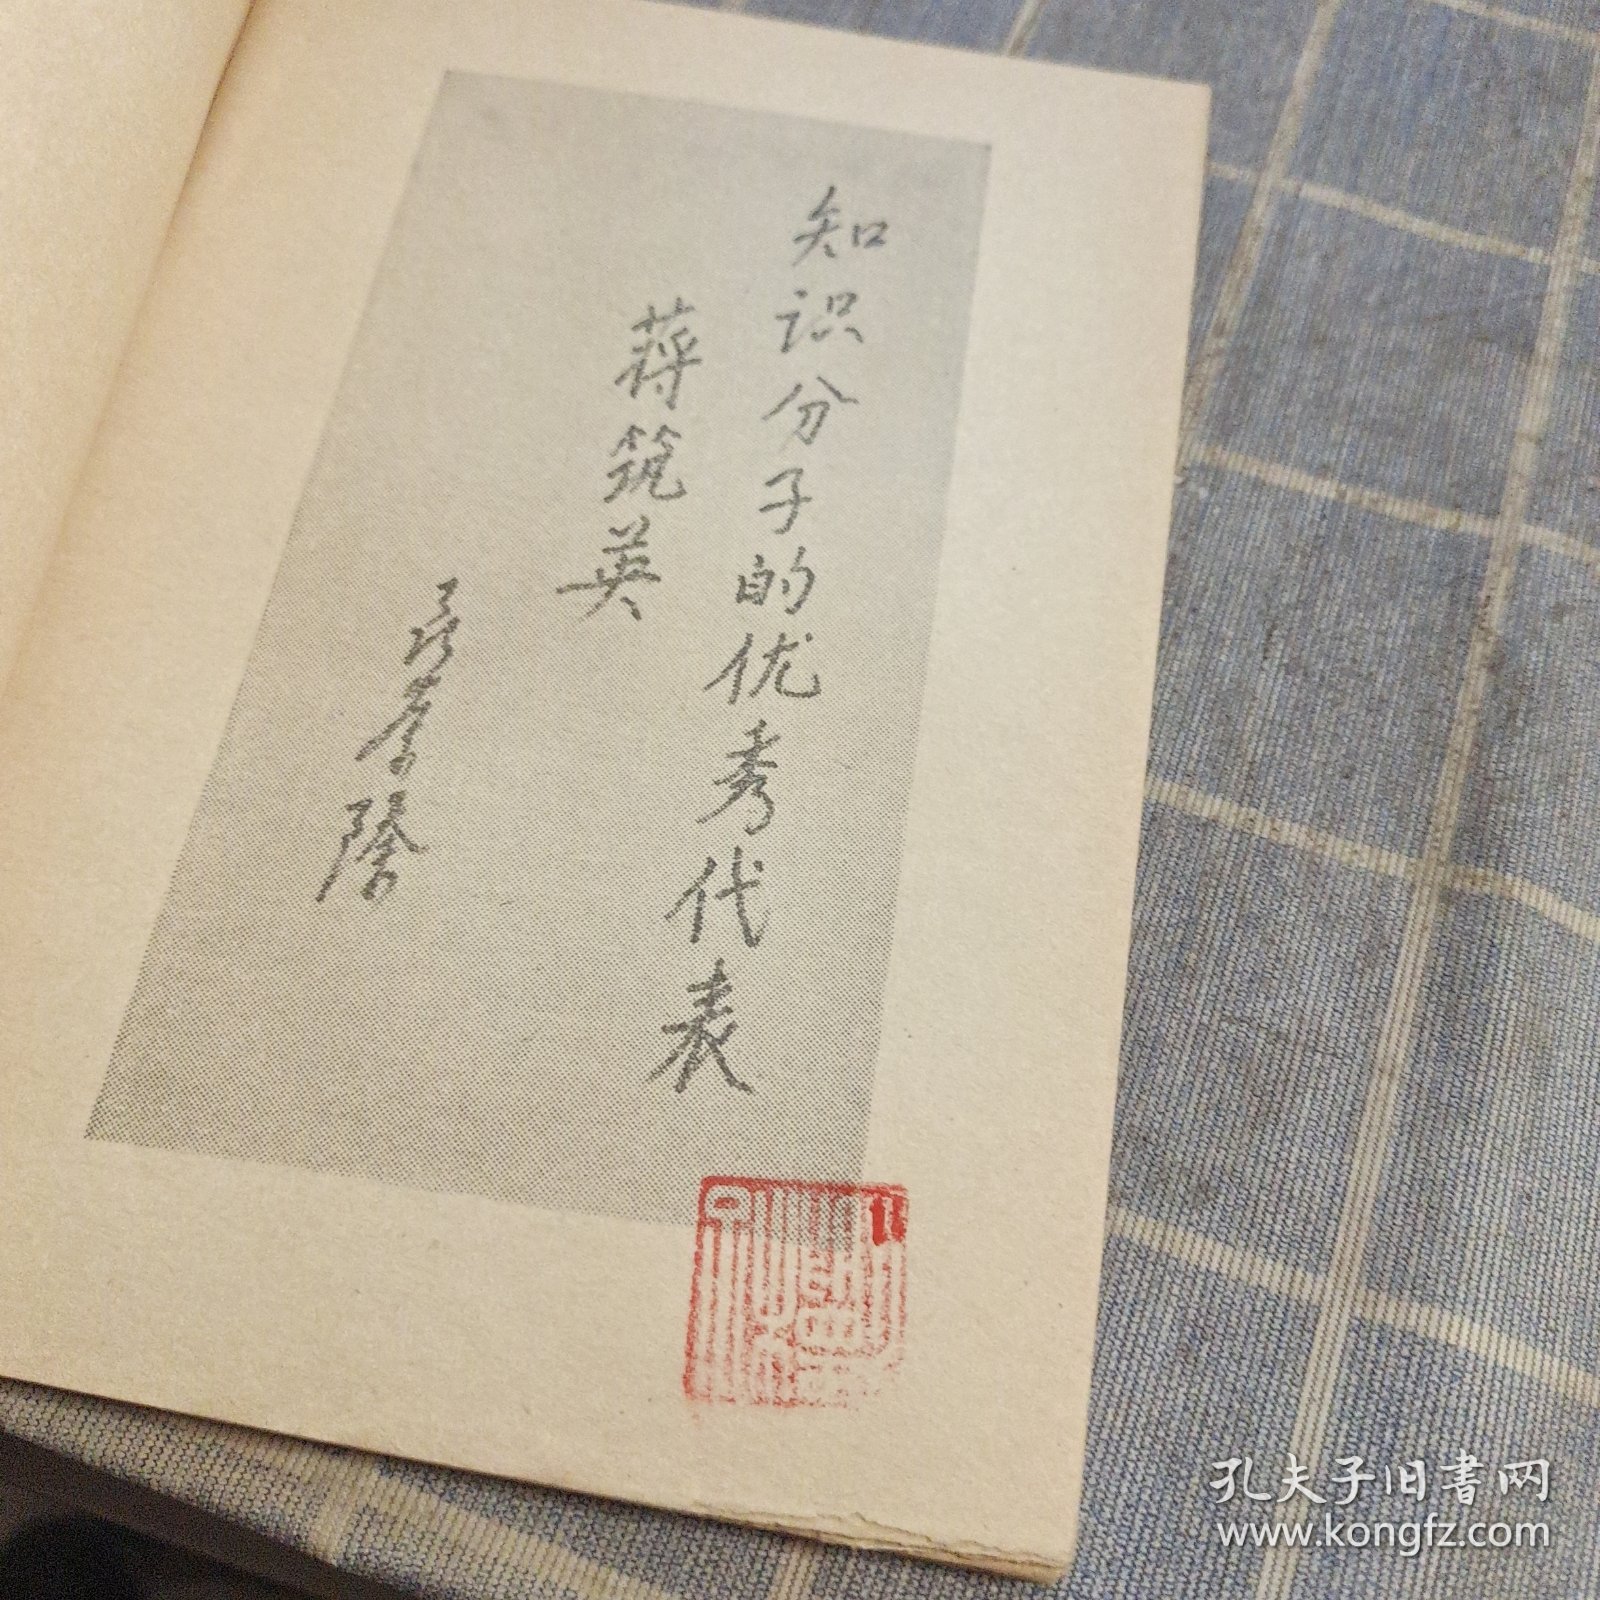 知识分子的优秀代表
蒋筑英
聂荣臻
孔夫子旧书网
www.kongfz.com